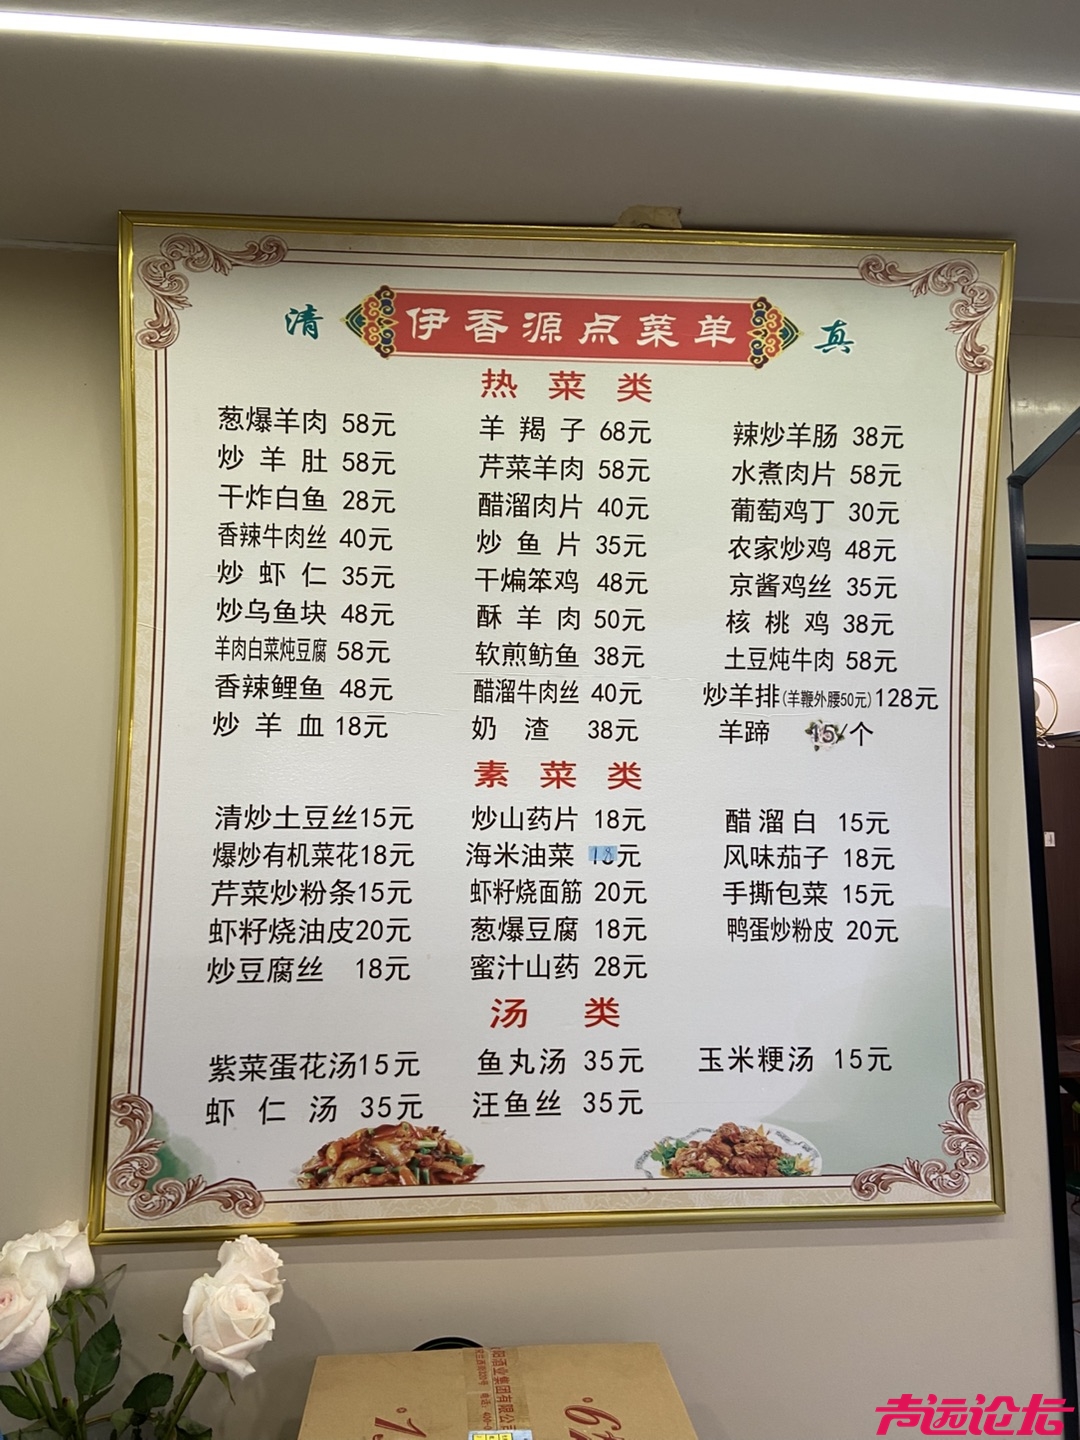 清 伊香源点菜单 真
热菜类
葱爆羊肉 58元 羊羯子 68元 辣炒羊肠 38元
炒羊肚 58元 芹菜羊肉 58元 水煮肉片 58元
干炸白鱼 28元 醋溜肉片 40元 葡萄鸡丁 30元
香辣牛肉丝 40元 炒鱼片 35元 农家炒鸡 48元
炒虾仁 35元 干煸笨鸡 48元 京酱鸡丝 35元
炒乌鱼块 48元 酥羊肉 50元 核桃鸡 38元
羊肉白菜炖豆腐 58元 软煎鲂鱼 38元 土豆炖牛肉 58元
香辣鲤鱼 48元 醋溜牛肉丝 40元 炒羊排(羊鞭外腰50元)128元
炒羊血 18元 奶渣 38元 羊蹄 15/个
素菜类
清炒土豆丝15元 炒山药片 18元 醋溜白 15元
爆炒有机菜花18元 海米油菜 18元 风味茄子 18元
芹菜炒粉条15元 虾籽烧面筋 20元 手撕包菜 15元
虾籽烧油皮20元 葱爆豆腐 18元 鸭蛋炒粉皮 20元
炒豆腐丝 18元 蜜汁山药 28元
汤类
紫菜蛋花汤15元 鱼丸汤 35元 玉米粳汤 15元
虾仁汤 35元 汪鱼丝 35元
酒业集团有限公司
声远论坛